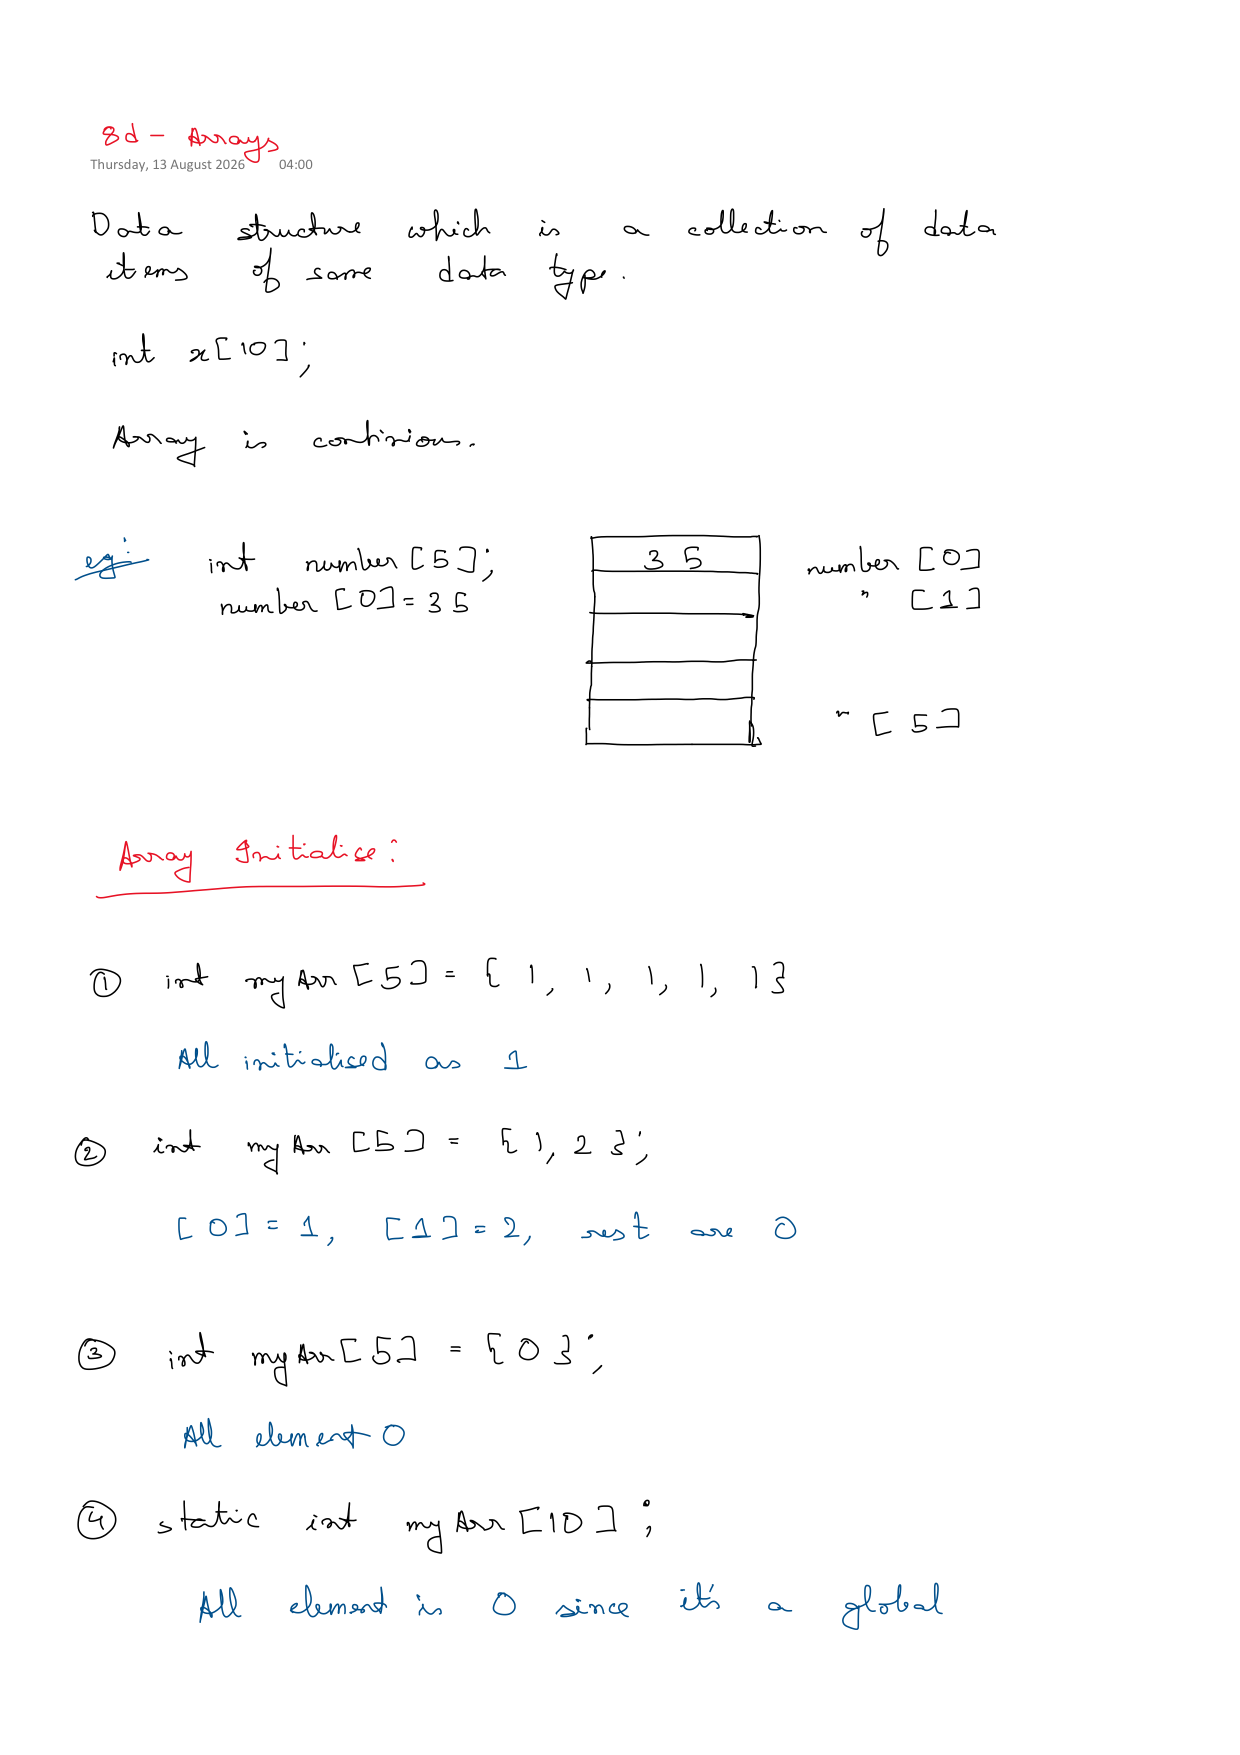 8d - Arrays
Thursday, 13 August 2026 04:00
Data structure which is a collection of data
items of same data type.
int x[10];
Array is continious.
eg: int number[5]; 35 number [0]
number [0] = 35 " [1]
" [5]
Array Initialise:
① int myArr [5] = { 1, 1, 1, 1, 1}
All initialised as 1
② int myArr [5] = { 1, 2 };
[0] = 1, [1] = 2, rest are 0
③ int myArr[5] = { 0 };
All element 0
④ static int myArr [10] ;
All element is 0 since it's a global